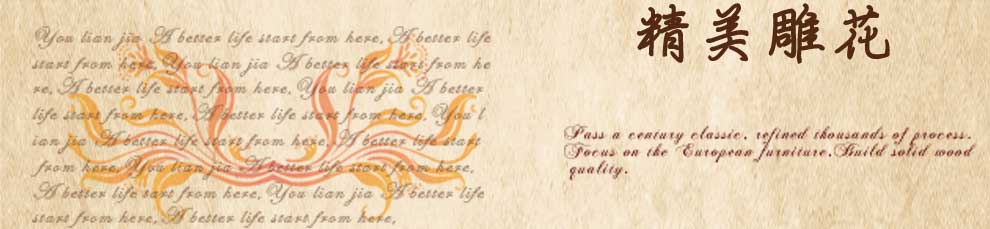 You lian jia A better life start from here, A better life
start from here, You lian jia A better life start from he
re, A better life start from here, You lian jia A better
life start from here, A better life start from here, You l
ian jia A better life start from here, A better life start
from here, You lian jia A better life start from here,
A better life start from here, You lian jia A better life
start from here, A better life start from here,
精美雕花
Pass a century classic, refined thousands of process.
Focus on the European furniture, Build solid wood
quality.